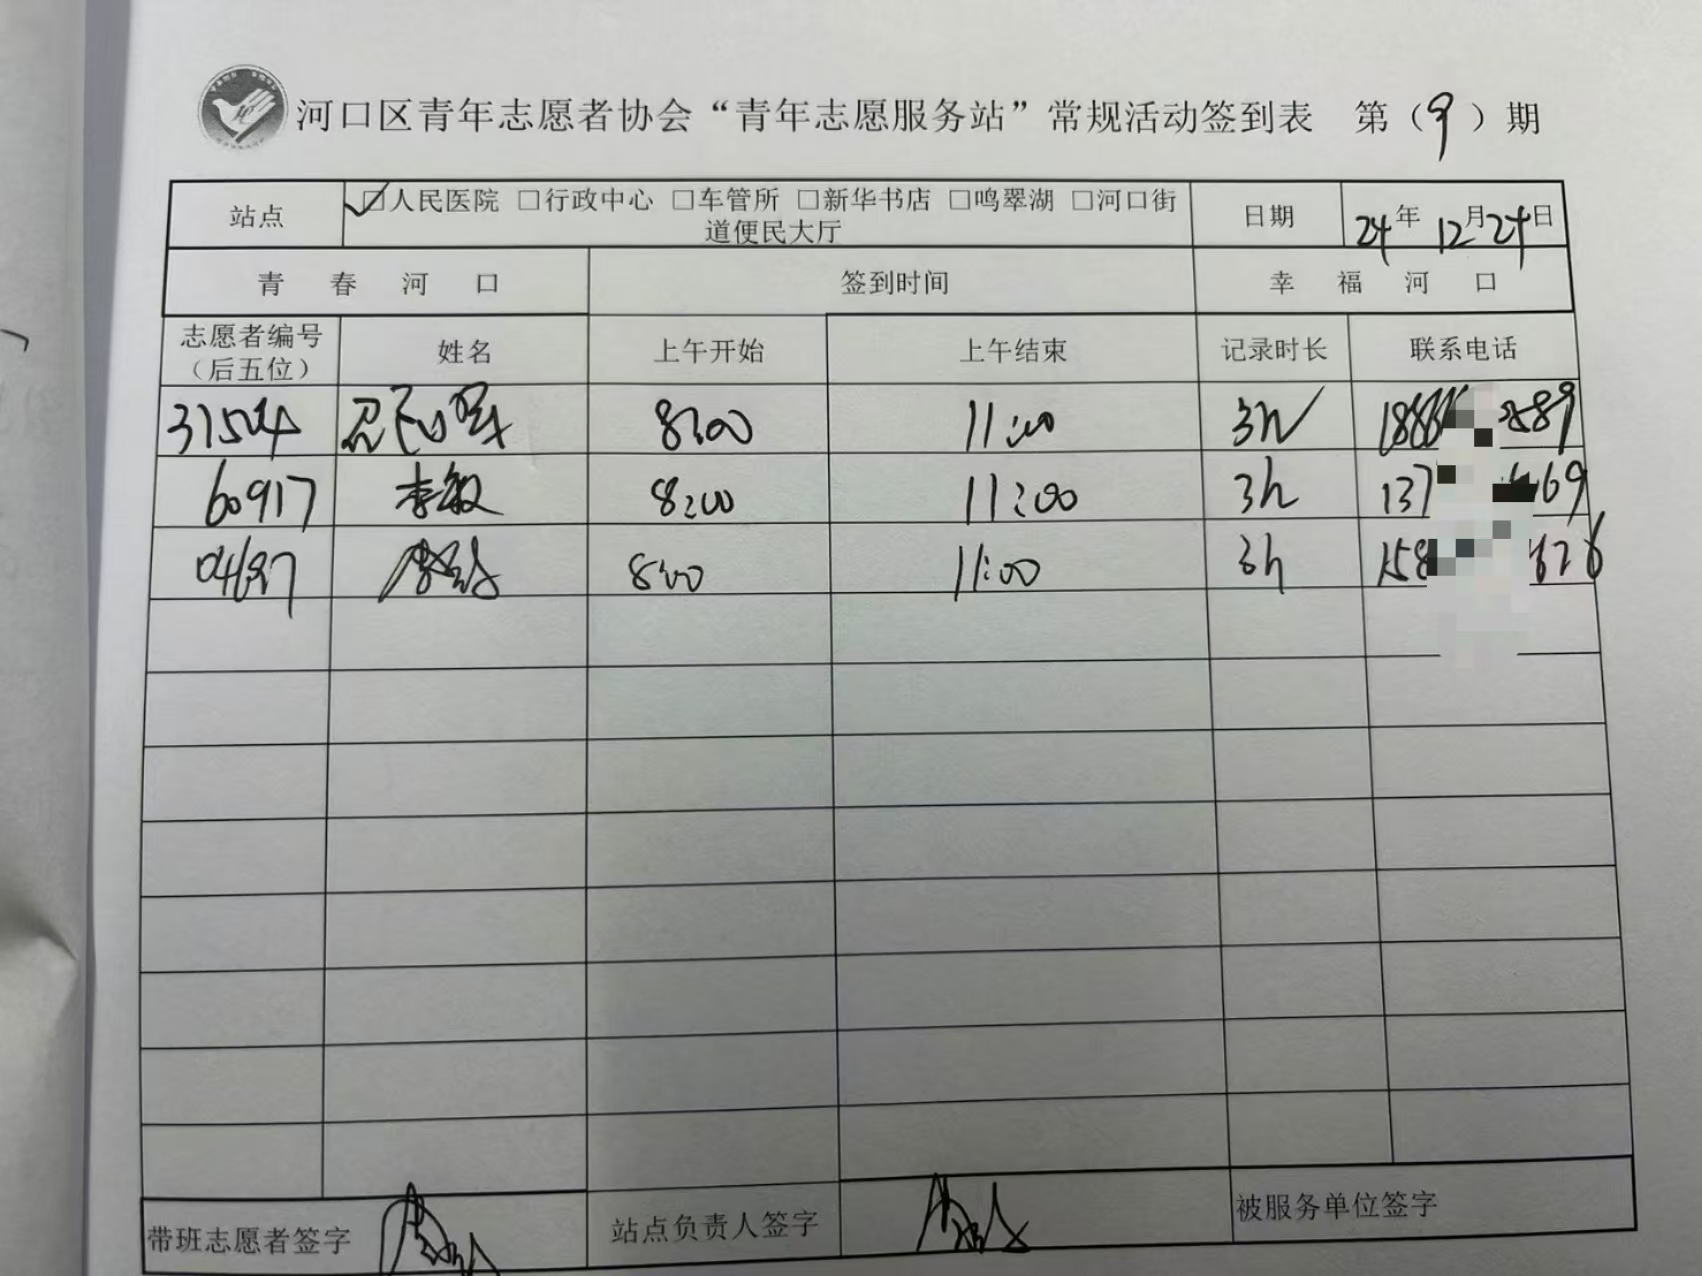 河口区青年志愿者协会“青年志愿服务站”常规活动签到表 第（9）期
站点 ☑人民医院 □行政中心 □车管所 □新华书店 □鸣翠湖 □河口街道便民大厅 日期 24年12月24日
青春河口 签到时间 幸福河口
志愿者编号（后五位） 姓名 上午开始 上午结束 记录时长 联系电话
31504 8:00 11:00 3h
60917 李敏 8:00 11:00 3h 137 69
8:00 11:00 3h 158 626
带班志愿者签字 站点负责人签字 被服务单位签字